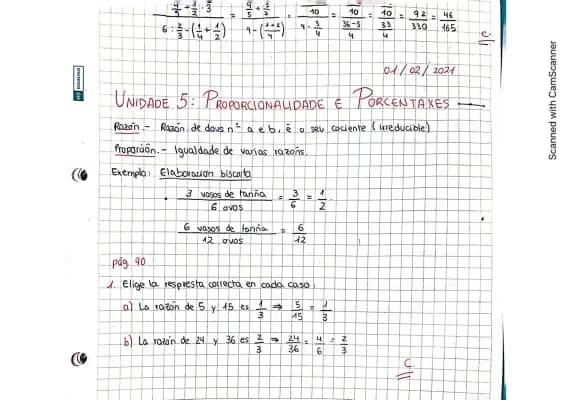 6 : 2/3 - (1/4 + 1/2)
= 92/330 = 46/165
C.
01/02/2021
UNIDADE 5: PROPORCIONALIDADE E PORCENTAXES
Razón.- Razón de dous nº a e b, é o seu cociente (irreducible)
Proporción.- Igualdade de varias razóns.
Exemplo: Elaboración biscoito
3 vasos de fariña / 6 ovos = 3/6 = 1/2
6 vasos de fariña / 12 ovos = 6/12
pág. 90
1. Elige la respuesta correcta en cada caso:
a) La razón de 5 y 15 es 1/3 ⇒ 5/15 = 1/3
b) La razón de 24 y 36 es 2/3 ⇒ 24/36 = 4/6 = 2/3
C
Scanned with CamScanner